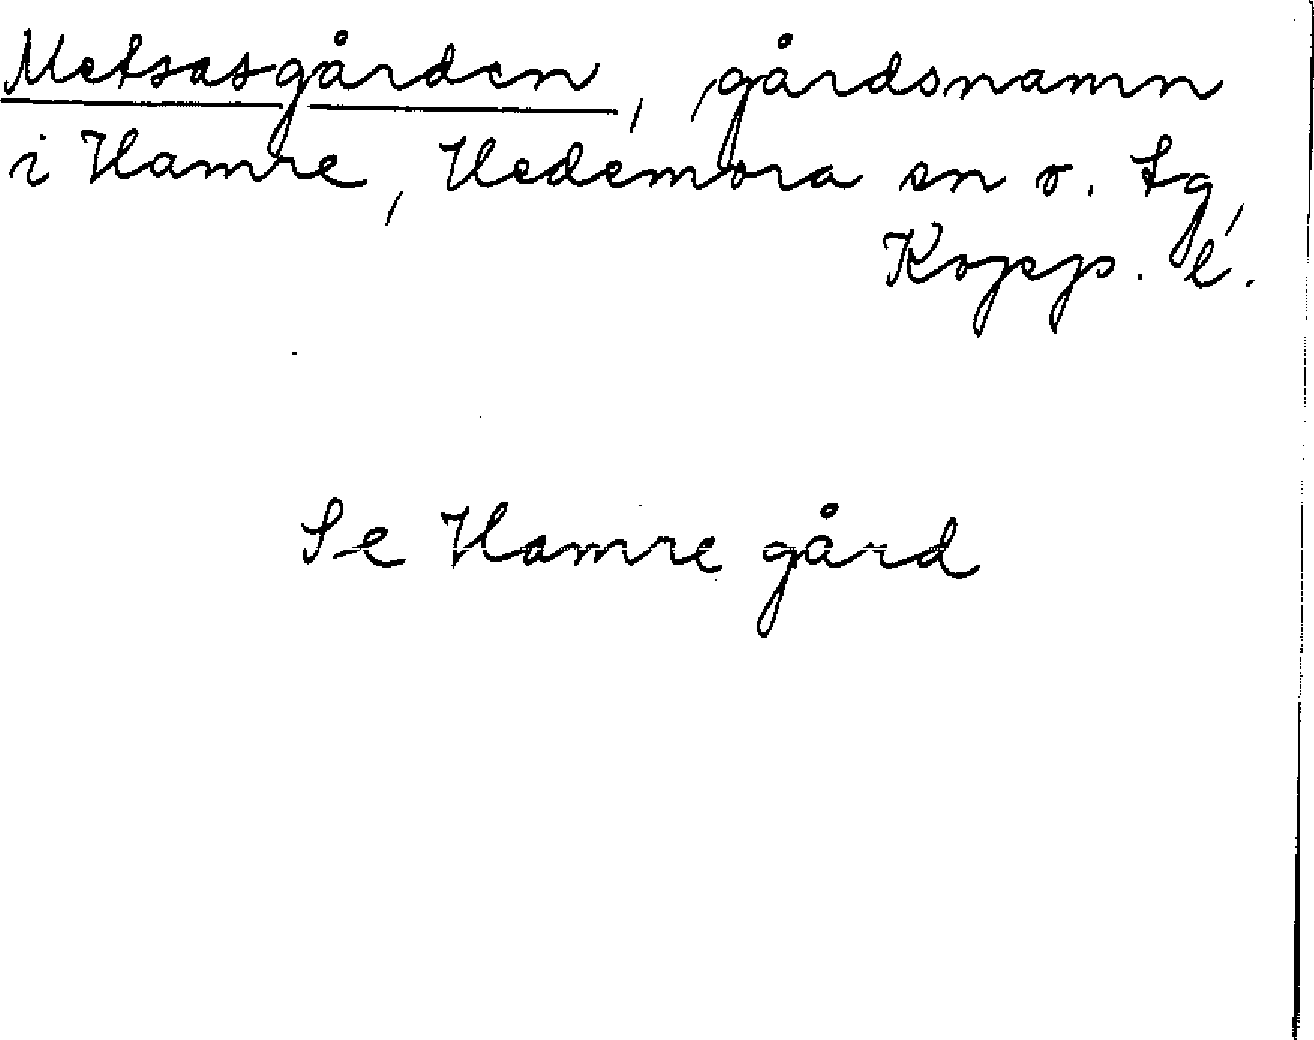 Metsasgården, gårdsnamn
i Hamre, Hedemora sn o. tg,
Kopp. l.
Se Hamre gård